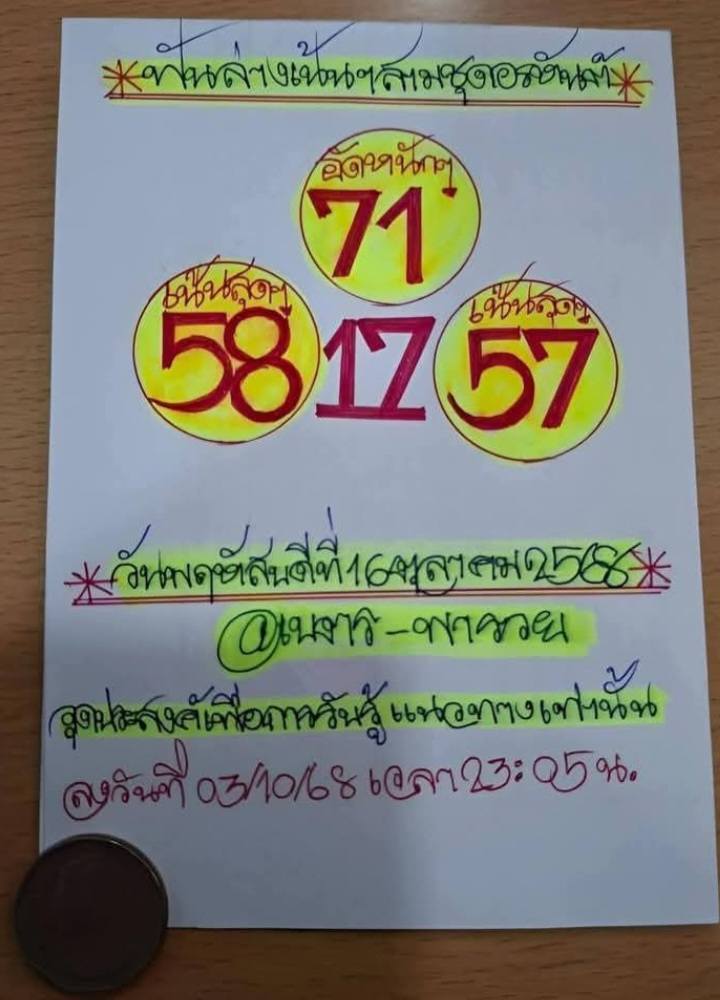 *ฟันล่างเน้นๆสามชุดอรหันต์*
อัดหนักๆ
71
เน้นสุดๆ
58
17
เน้นสุดๆ
57
*วันพฤหัสบดีที่16ตุลาคม2568*
@เนงาร-พารวย
จุดประสงค์เพื่อการรับรู้แนวทางเท่านั้น
ลงวันที่ 03/10/68 เวลา 23:05น.